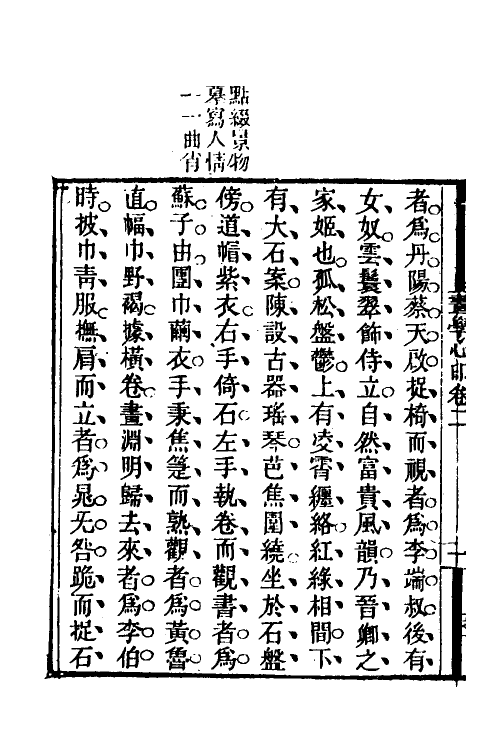 點綴景物
摹寫人情
一一曲肖
者為丹陽蔡天啟捉椅而視者為李端叔後有
女奴雲鬟翠飾侍立自然富貴風韻乃晉卿之
家姬也孤松盤鬱上有凌霄纏絡紅綠相間下
有大石案陳設古器瑤琴芭蕉圍繞坐於石盤
傍道帽紫衣右手倚石左手執卷而觀書者為
蘇子由團巾繭衣手秉焦箑而熟觀者為黃魯
直幅巾野褐據橫卷畫淵明歸去來者為李伯
時披巾青服撫肩而立者為晁无咎跪而捉石